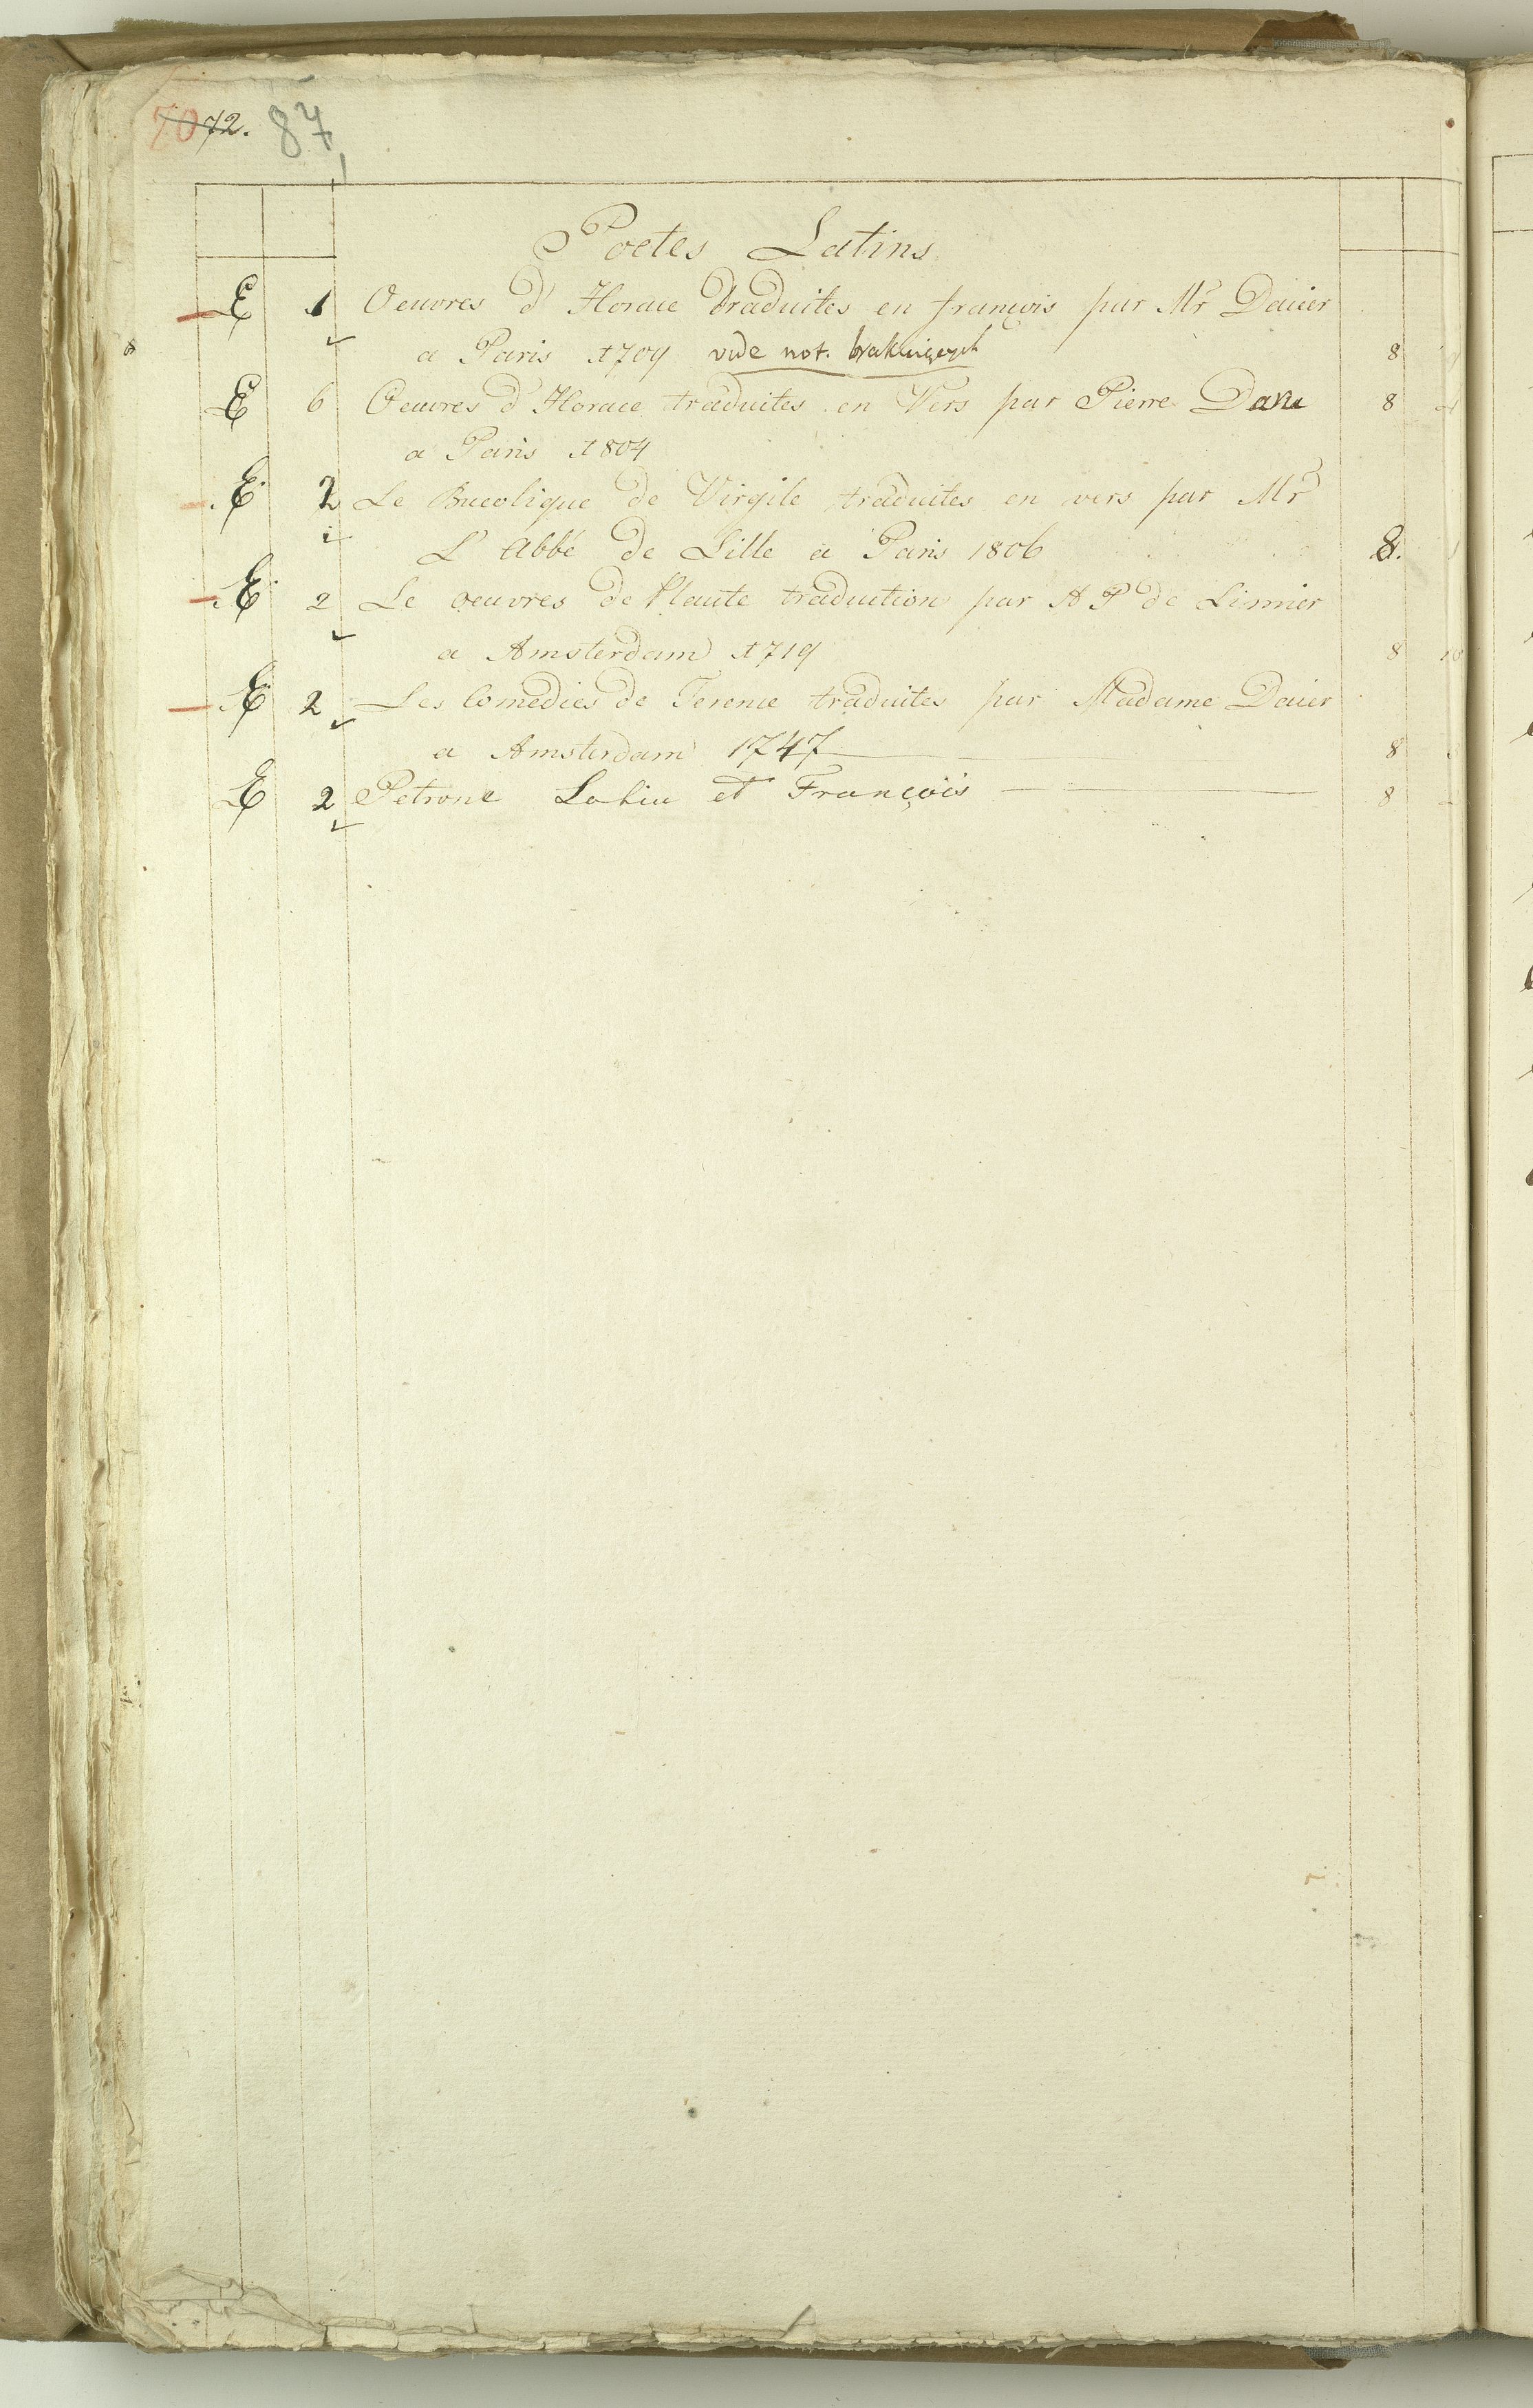 70 72. 87
Poetes Latins
E 1 Oeuvres d' Horace traduites en françois par Mr Dacier
a Paris 1709 vide not. 8
E 6 Oeuvres d'Horace traduites en Vers par Pierre Daru 8
a Paris 1804
E 2 Le Bucolique de Virgile traduites en vers par Mr
L'Abbé de Lille a Paris 1806 8.
E 2 Le oeuvres de Plaute traduction par H P de Limier
a Amsterdam 1719 8 10
E 2 Les Comedies de Terence traduites par Madame Dacier
a Amsterdam 1747 8
E 2 Petrone Latin et François 8